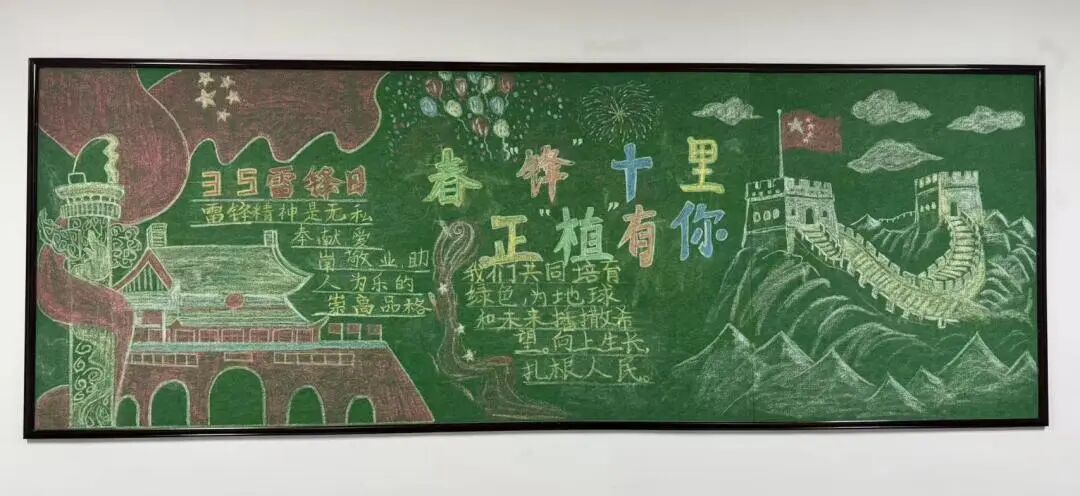 35雷锋日
雷锋精神是无私
奉献爱
岗敬业助
人为乐的
崇高品格
春“锋”十里
正“植”有你
我们共同培育
绿色,为地球
和未来播撒希
望。向上生长,
扎根人民。